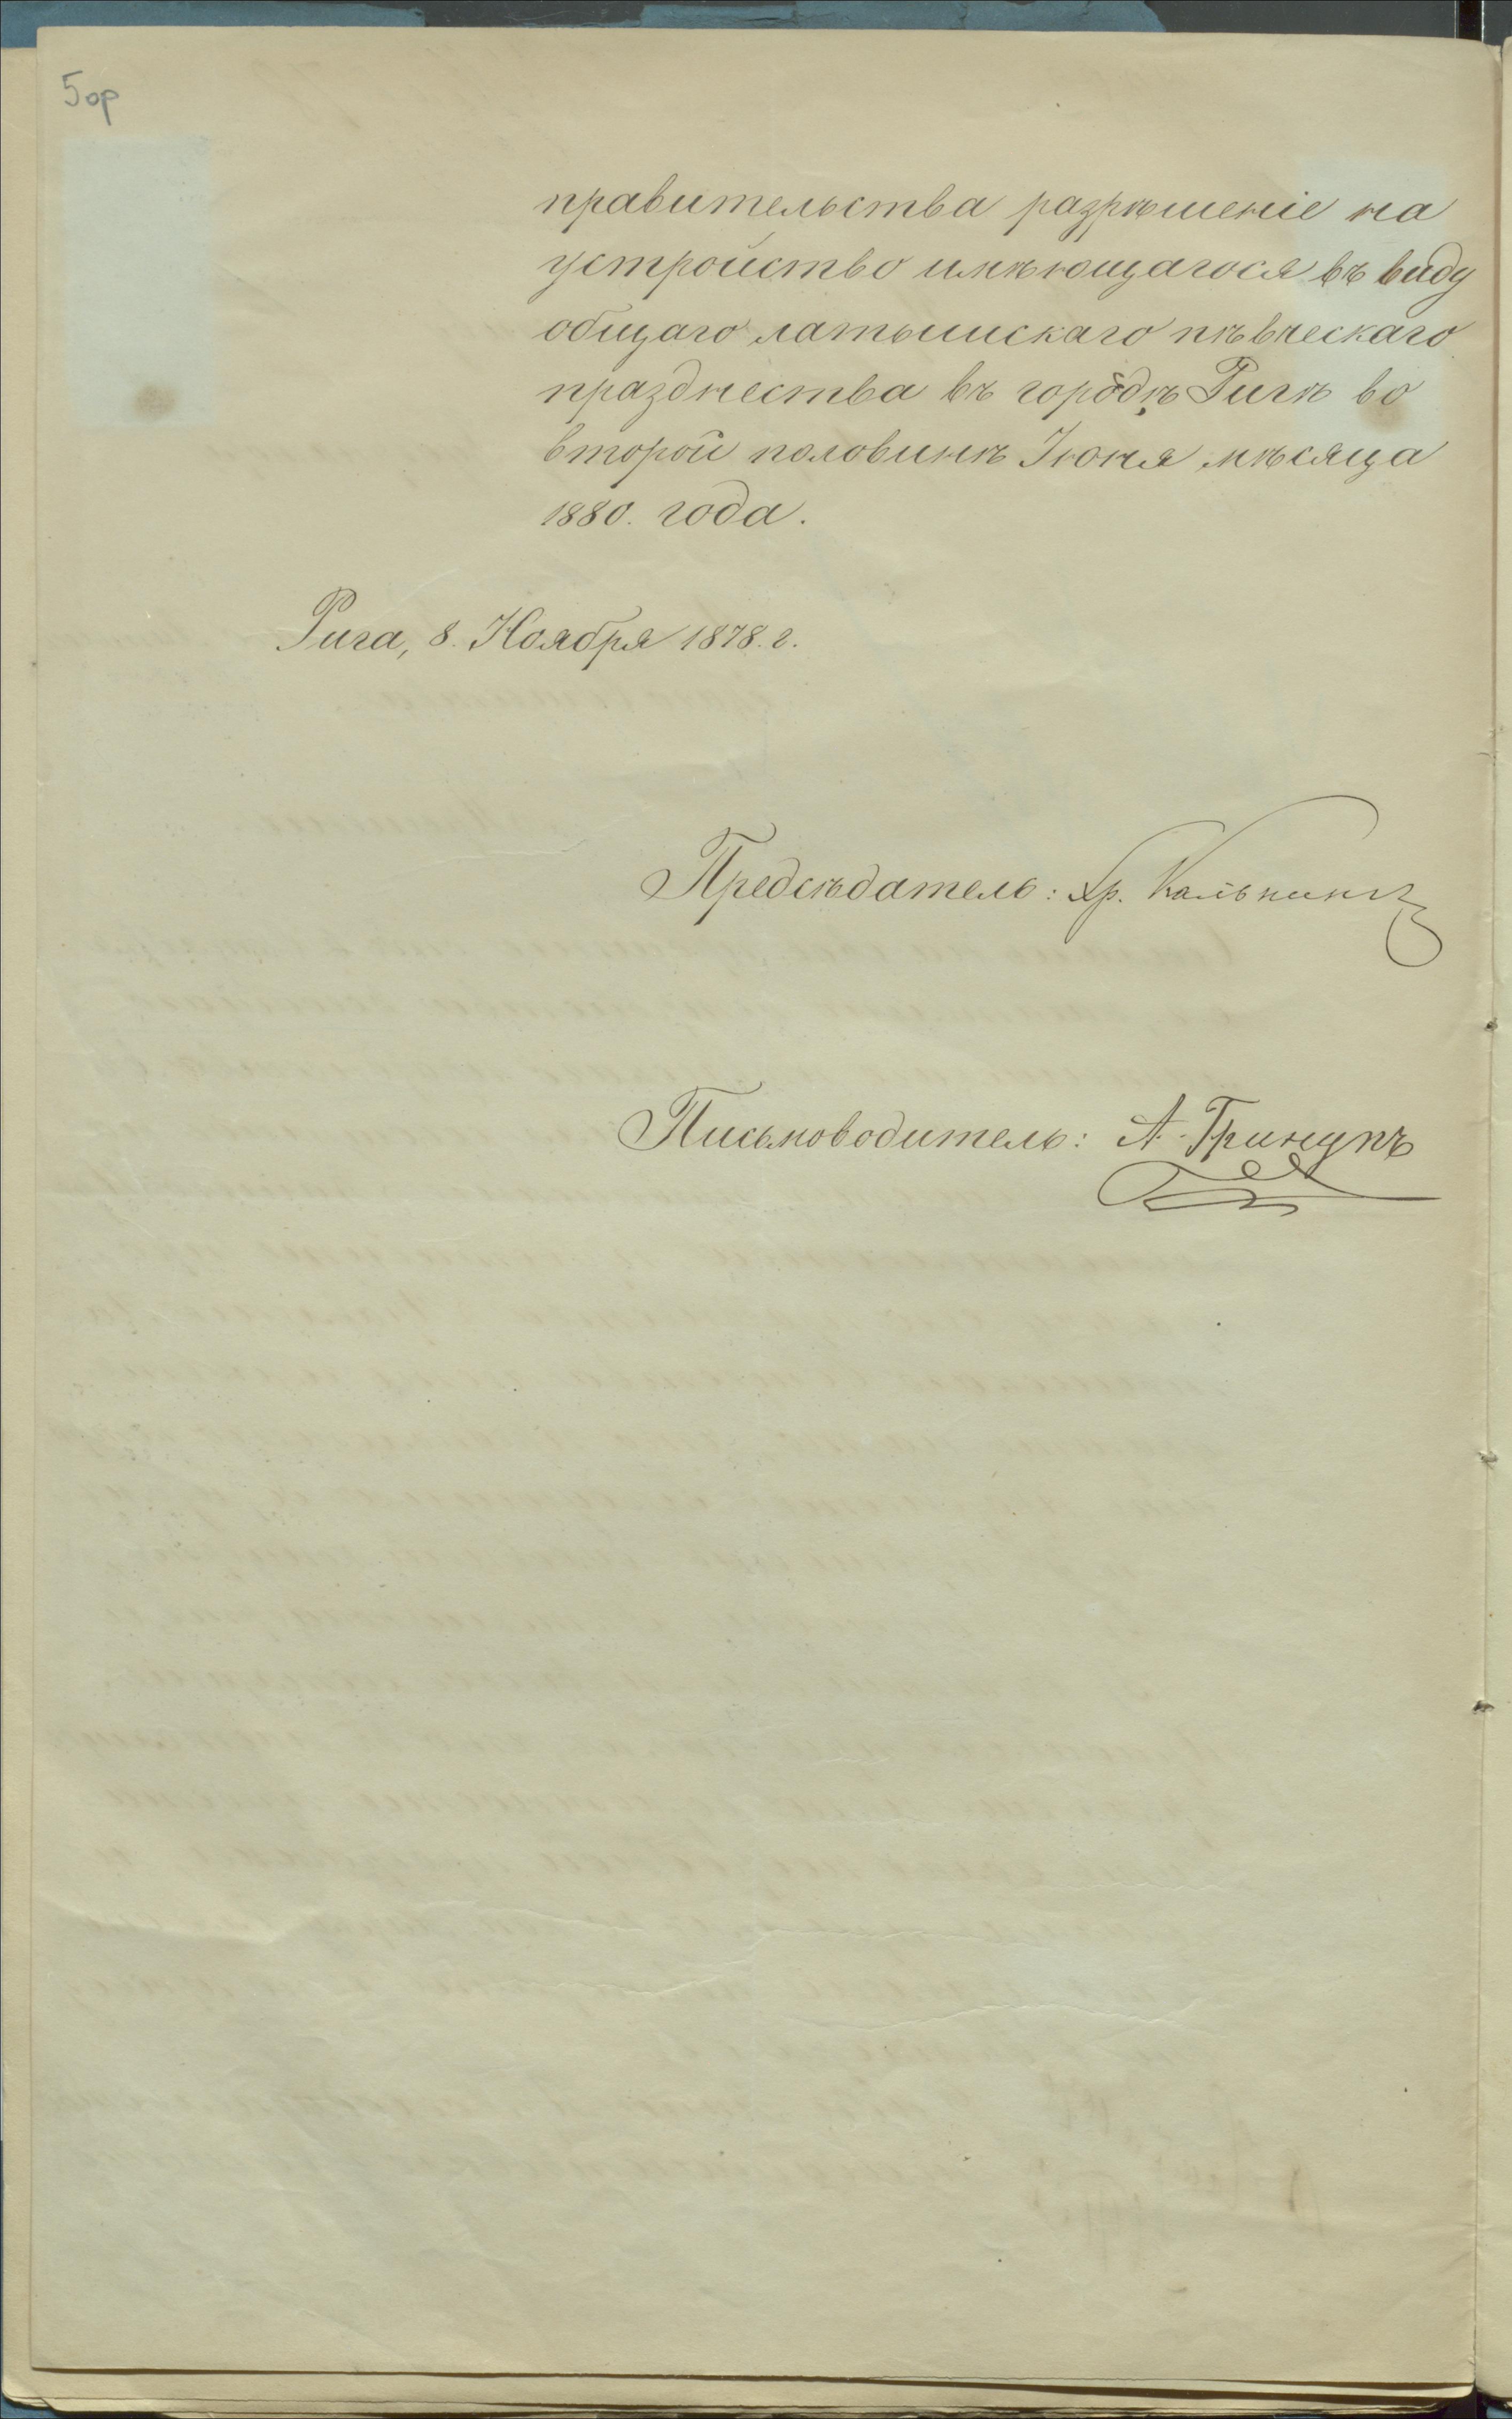 5ор
правительства разрѣшеніе на
устройство имѣющагося въ виду
общаго латышскаго пѣвческаго
празднества въ городѣ Ригѣ во
второй половинѣ Іюня мѣсяца
1880. года.
Рига, 8. Ноября 1878. г.
Предсѣдатель: Хр. Кальнинъ
Письмоводитель: А. Гринупъ